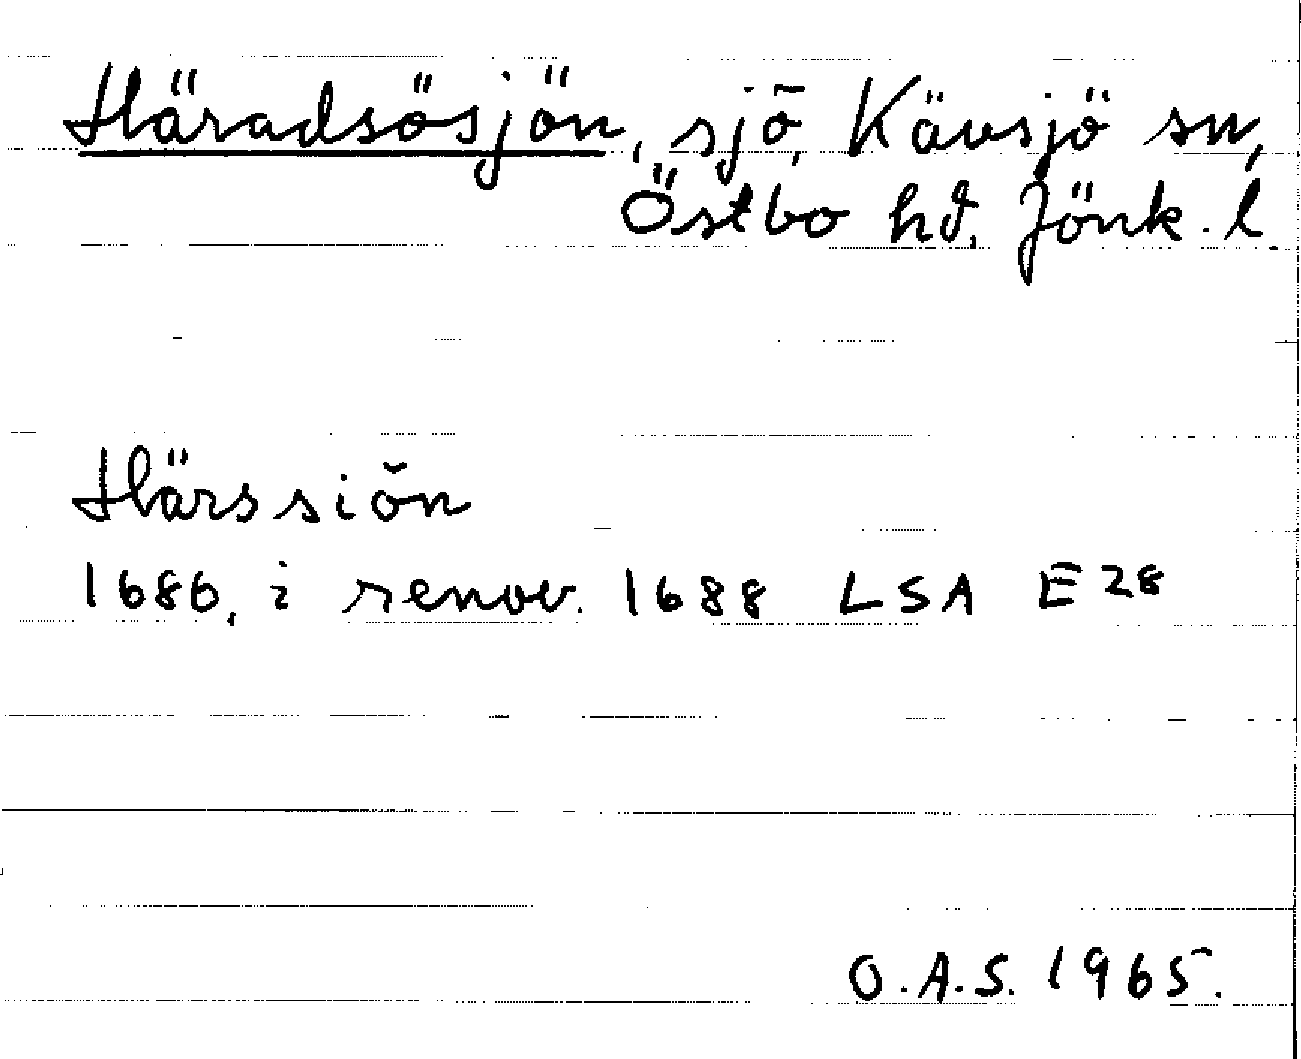 Häradsösjön, sjö, Kävsjö sn,
Östbo hd, Jönk. l.
Härssiön
1686, i renov. 1688 LSA E28
O.A.S. 1965.